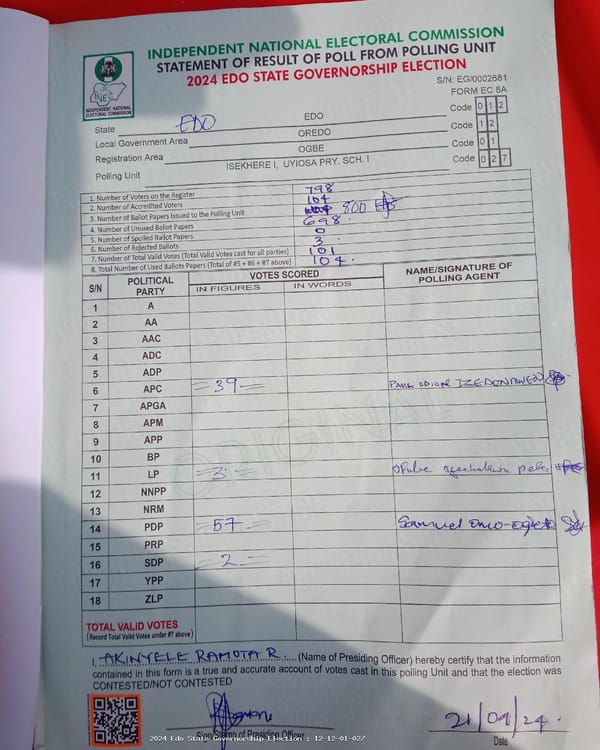 INDEPENDENT NATIONAL ELECTORAL COMMISSION
STATEMENT OF RESULT OF POLL FROM POLLING UNIT
2024 EDO STATE GOVERNORSHIP ELECTION
INEC
INDEPENDENT NATIONAL
ELECTORAL COMMISSION
S/N: EG/0002681
FORM EC 8A
State EDO EDO Code 0 1 2
Local Government Area OREDO Code 1 2
Registration Area OGBE Code 0 1
Polling Unit ISEKHERE I, UYIOSA PRY. SCH. I Code 0 2 7
1. Number of Voters on the Register 798
2. Number of Accredited Voters 104
3. Number of Ballot Papers Issued to the Polling Unit 800
4. Number of Unused Ballot Papers 698
5. Number of Spoiled Ballot Papers 0
6. Number of Rejected Ballots 3
7. Number of Total Valid Votes (Total Valid Votes cast for all parties) 101
8. Total Number of Used Ballots Papers (Total of #5 + #6 + #7 above) 104
S/N POLITICAL PARTY VOTES SCORED NAME/SIGNATURE OF POLLING AGENT
IN FIGURES IN WORDS
1 A
2 AA
3 AAC
4 ADC
5 ADP
6 APC =39=
7 APGA
8 APM
9 APP
10 BP
11 LP =3=
12 NNPP
13 NRM
14 PDP =57= Samuel
15 PRP
16 SDP =2=
17 YPP
18 ZLP
ORIGINAL
TOTAL VALID VOTES
(Record Total Valid Votes under #7 above)
I, AKINYELE RAMOTA R. (Name of Presiding Officer) hereby certify that the information
contained in this form is a true and accurate account of votes cast in this polling Unit and that the election was
CONTESTED/NOT CONTESTED
21/09/24
Sign/Stamp of Presiding Officer Date
2024 Edo State Governorship Election : 12-12-01-027